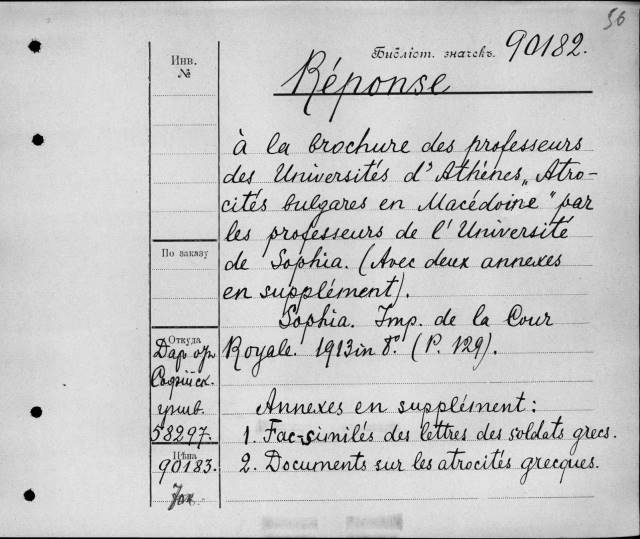 56
Библіот. значекъ. 90182.
Инв.
№
Réponse
à la brochure des professeurs
des Universités d'Athènes „Atro-
cités bulgares en Macédoine" par
les professeurs de l'Université
de Sophia. (Avec deux annexes
en supplément).
Sophia. Imp. de la Cour
Royale. 1913 in 8º. (P. 129).
Annexes en supplément:
1. Fac-similés des lettres des soldats grecs.
2. Documents sur les atrocités grecques.
По заказу
Откуда
Дар от
Софійск.
унив.
58297.
Цѣна
90183.